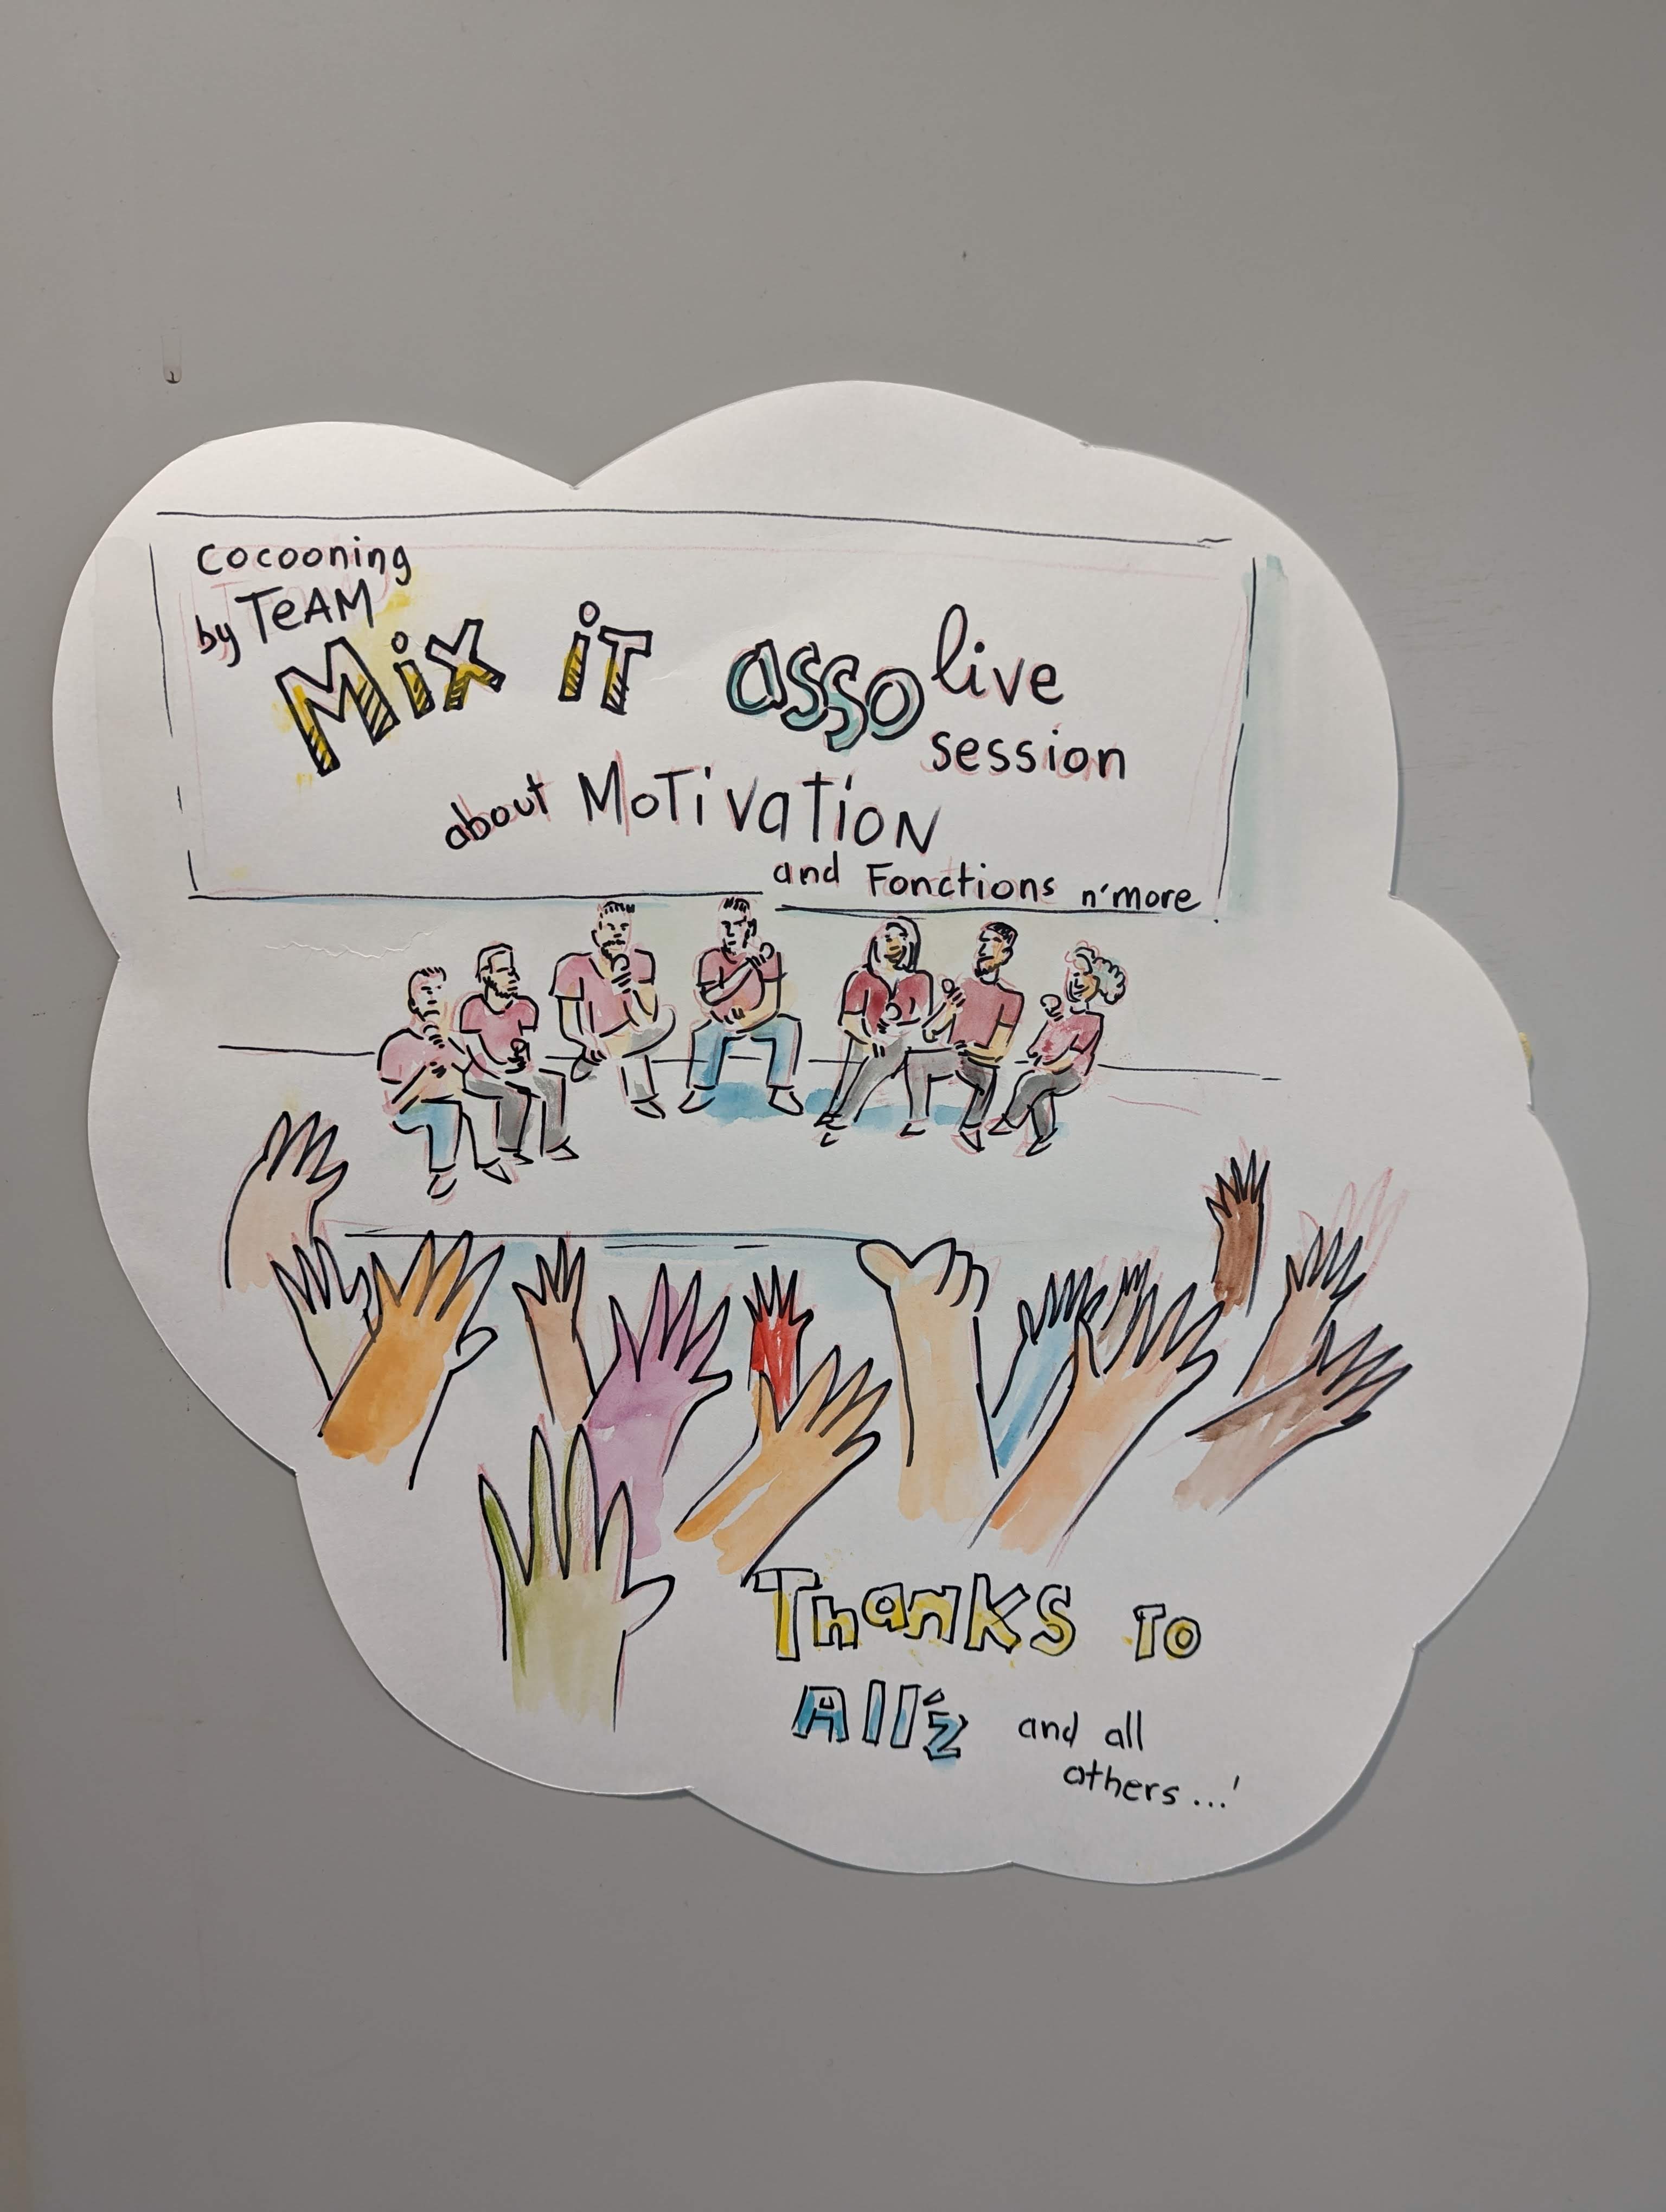 cocooning
by TeAM
Mix iT asso live
session
about MoTivaTioN
and Fonctions n'more
ThanKS To
All'z and all
others...'